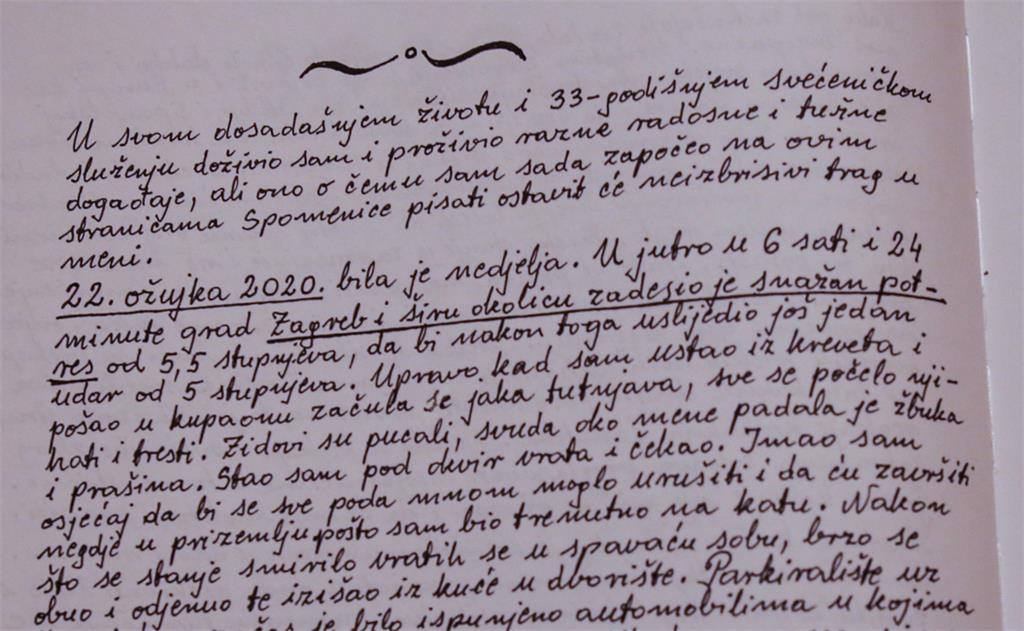 U svom dosadašnjem životu i 33-godišnjem svećeničkom
služenju doživio sam i proživio razne radosne i tužne
događaje, ali ono o čemu sam sada započeo na ovim
stranicama Spomenice pisati ostavit će neizbrisivi trag u
meni.
22. ožujka 2020. bila je nedjelja. U jutro u 6 sati i 24
minute grad Zagreb i širu okolicu zadesio je snažan pot-
res od 5,5 stupnjeva, da bi nakon toga uslijedio još jedan
udar od 5 stupnjeva. Upravo kad sam ustao iz kreveta i
pošao u kupaonu začula se jaka tutnjava, sve se počelo nji-
hati i tresti. Zidovi su pucali, svuda oko mene padala je žbuka
i prašina. Stao sam pod okvir vrata i čekao. Imao sam
osjećaj da bi se sve poda mnom moglo urušiti i da ću završiti
negdje u prizemlju pošto sam bio trenutno na katu. Nakon
što se stanje smirilo vratih se u spavaću sobu, brzo se
obuo i odjenuo te izišao iz kuće u dvorište. Parkiralište uz
je bilo ispunjeno automobilima u kojima